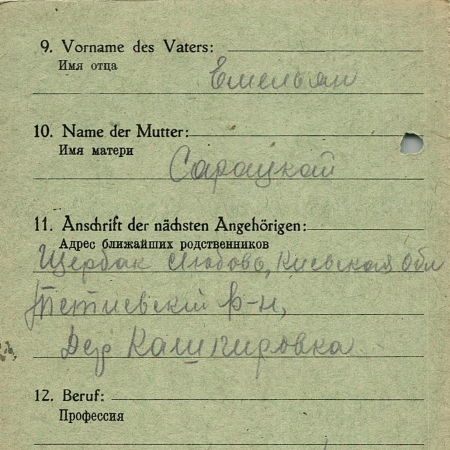 9. Vorname des Vaters:
Имя отца
Емельян
10. Name der Mutter:
Имя матери
Сарацкай
11. Anschrift der nächsten Angehörigen:
Адрес ближайших родственников
Щербак Любовь, Киевская Обл
Тетиевскй р-н,
Дер Кашпировка
12. Beruf:
Профессия